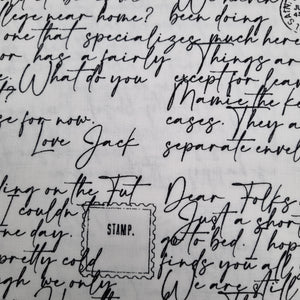 llege near home?
one that specializes
or has a fairly
What do you
se for now.
Love Jack
been doing
much here
Things ar
except for lear
Mamie the k
cases. They a
separate envel
ling on the Fut
I couldn
one day.
pretty cold
gh we only
STAMP.
Dear Folks
Just a short
go to bed. I hop
finds you all
We are still